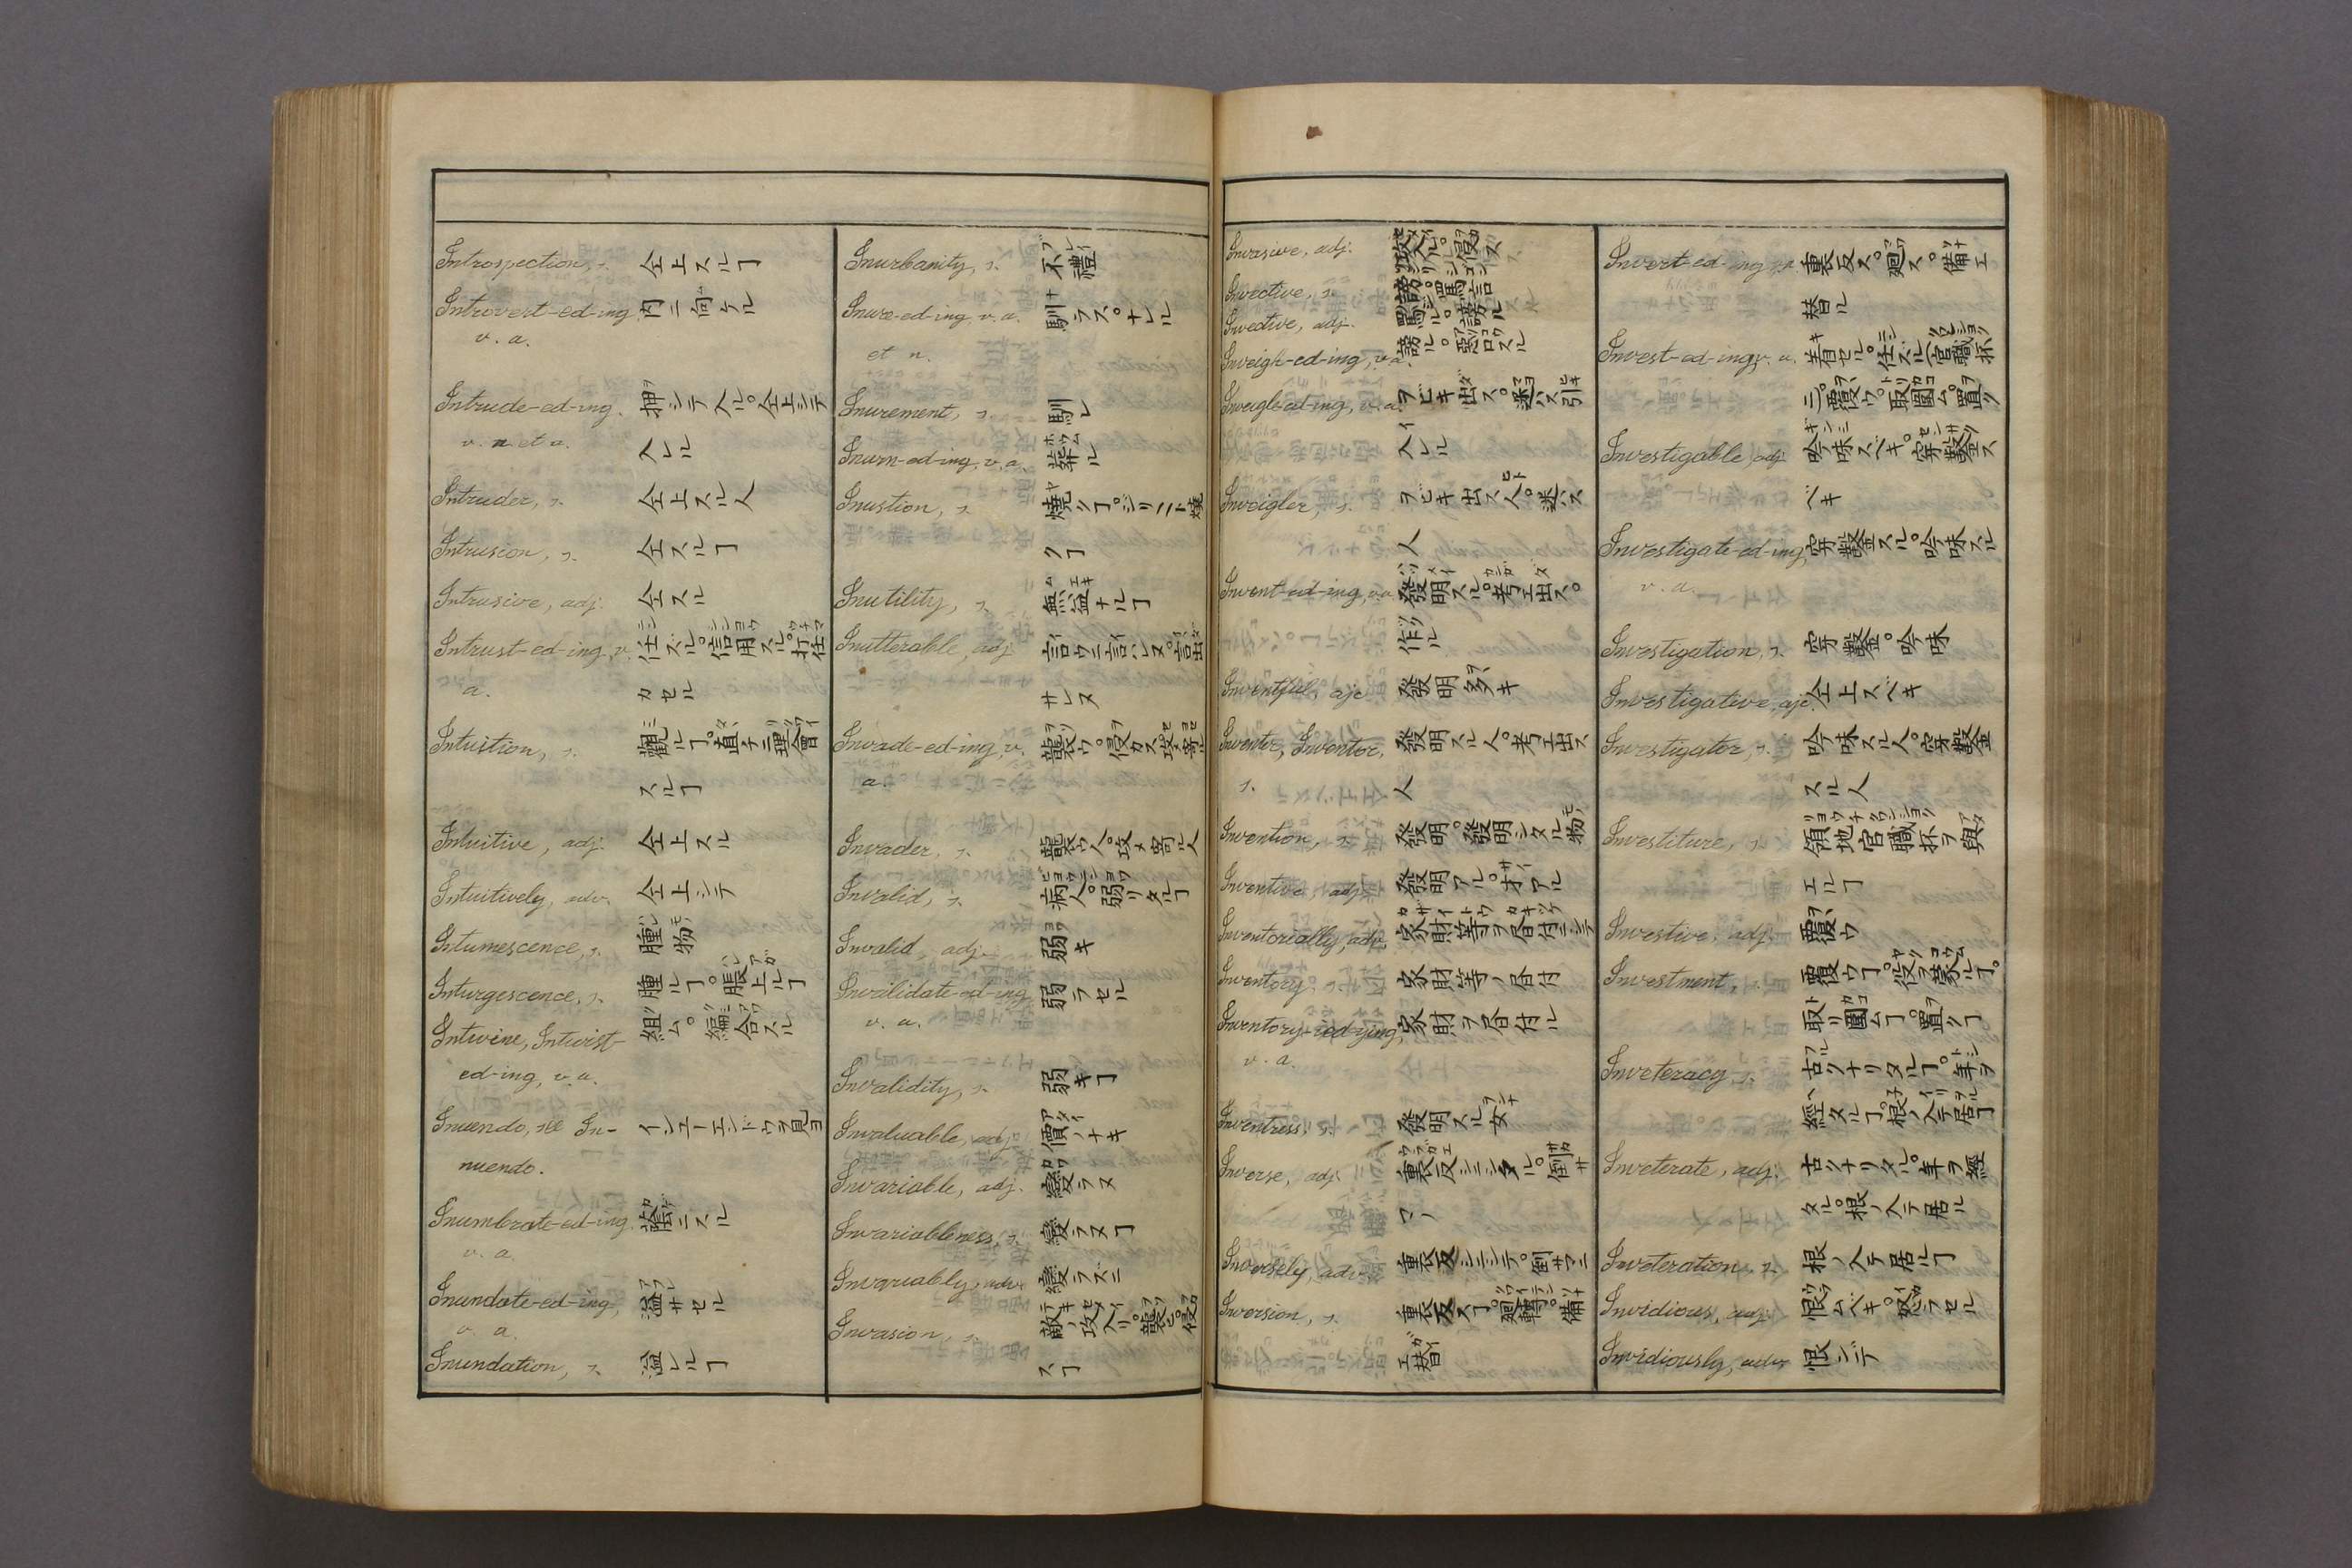 Introspection, s. 仝上スルヿ
Introvert-ed-ing 内ニ向ケル
v. a.
Intrude-ed-ing. 押シテ入ル。仝上シテ
v. n. et a. 入レル
Intruder, s. 仝上スル人
Intrusion, s. 仝スルヿ
Intrusive, adj. 仝スル
Intrust-ed-ing, v. 任スル。信用スル。打任
a. カセル
Intuition, s. 觀ルヿ。直チニ理會
スルヿ
Intuitive, adj. 仝上スル
Intuitively, adv. 仝上シテ
Intumescence, s. 腫物
Inturgescence, s. 腫ルヿ。脹上ルヿ
Intwine, Intwist- 組ム。編合スル
ed-ing, v. a.
Inuendo, see In- インユーエンドウヲ見ヨ
nuendo.
Inumbrate-ed-ing 蔭ニスル
v. a.
Inundate-ed-ing, 溢サセル
v. a.
Inundation, s. 溢レルヿ
Inurbanity, s. 不禮
Inure-ed-ing, v. a. 馴ラス。ナレル
et n.
Inurement, s. 馴レ
Inurn-ed-ing, v. a. 葬ル
Inustion, s. 燒クヿ。ジリニト燒
クヿ
Inutility, s. 無益ナルヿ
Inutterable, adj. 言ウニ言ハレヌ。言出
サレヌ
Invade-ed-ing, v. 襲ウ。侵カス。攻寄ル
a.
Invader, s. 襲ウ人。攻メ寄ル人
Invalid, s. 病人。弱リタルヿ
Invalid, adj. 弱キ
Invalidate-ed-ing 弱ラセル
v. a.
Invalidity, s. 弱キヿ
Invaluable, adj. 價ノナキ
Invariable, adj. 變ラヌ
Invariableness, s. 變ラヌヿ
Invariably, adv. 變ラズニ
Invasion, s. 敵ノ攻メ入リ。襲ヒ。侵
スヿ
Invasive, adj. 攻入ル。侵ス
Invective, s. 謗。罵言
Invective, adj. 罵ル。謗ル
Inveigh-ed-ing, v. a. 謗ル。惡口スル
Inveigl-ed-ing, v. a. ヲビキ出ス。迷ハス引
入レル
Inveigler, s. ヲビキ出ス人。迷ハス
人
Invent-ed-ing, v. a. 發明スル。考エ出ス。
作ル
Inventful, ajc. 發明多キ
Inventer, Inventor, 發明スル人。考エ出ス
s. 人
Invention, s. 發明。發明シタル物
Inventive, adj. 發明アル。才アル
Inventorially, adv. 家財等ヲ昏付ニシテ
Inventory, s. 家財等ノ昏付
Inventory-ied-ying, 家財ヲ昏付ル
v. a.
Inventress, s. 發明スル女
Inverse, adj. 裏反シニシタル。倒サ
マノ
Inversely, adv. 裏反シニシテ。倒サマニ
Inversion, s. 裏反スヿ。廻轉。備
エ替
Invert-ed-ing v. a. 裏反ス。廻ス。備エ
替ル
Invest-ed-ing, v. a. 着セル。任スル(官職抔
ニ。覆ウ。取圍ム。置ク
Investigable, adj. 吟味スベキ。穿鑿ス
ベキ
Investigate-ed-ing, 穿鑿スル。吟味スル
v. a.
Investigation, s. 穿鑿。吟味
Investigative, ajc. 仝上スベキ
Investigator, s. 吟味スル人。穿鑿
スル人
Investiture, s. 領地官職抔ヲ與
エルヿ
Investive, adj. 覆ウ
Investment, s. 覆ウヿ。役ヲ蒙ルヿ。
取リ圍ムヿ。置クヿ
Inveteracy, s. 古クナリタルヿ。年ヲ
經タルヿ。根ノ入テ居ルヿ
Inveterate, adj. 古クナリタル。年ヲ經
タル。根ノ入テ居ル
Inveteration, s. 根ノ入テ居ルヿ
Invidious, adj. 恨ムベキ。怒ラセル
Invidiously, adv. 恨ンデ